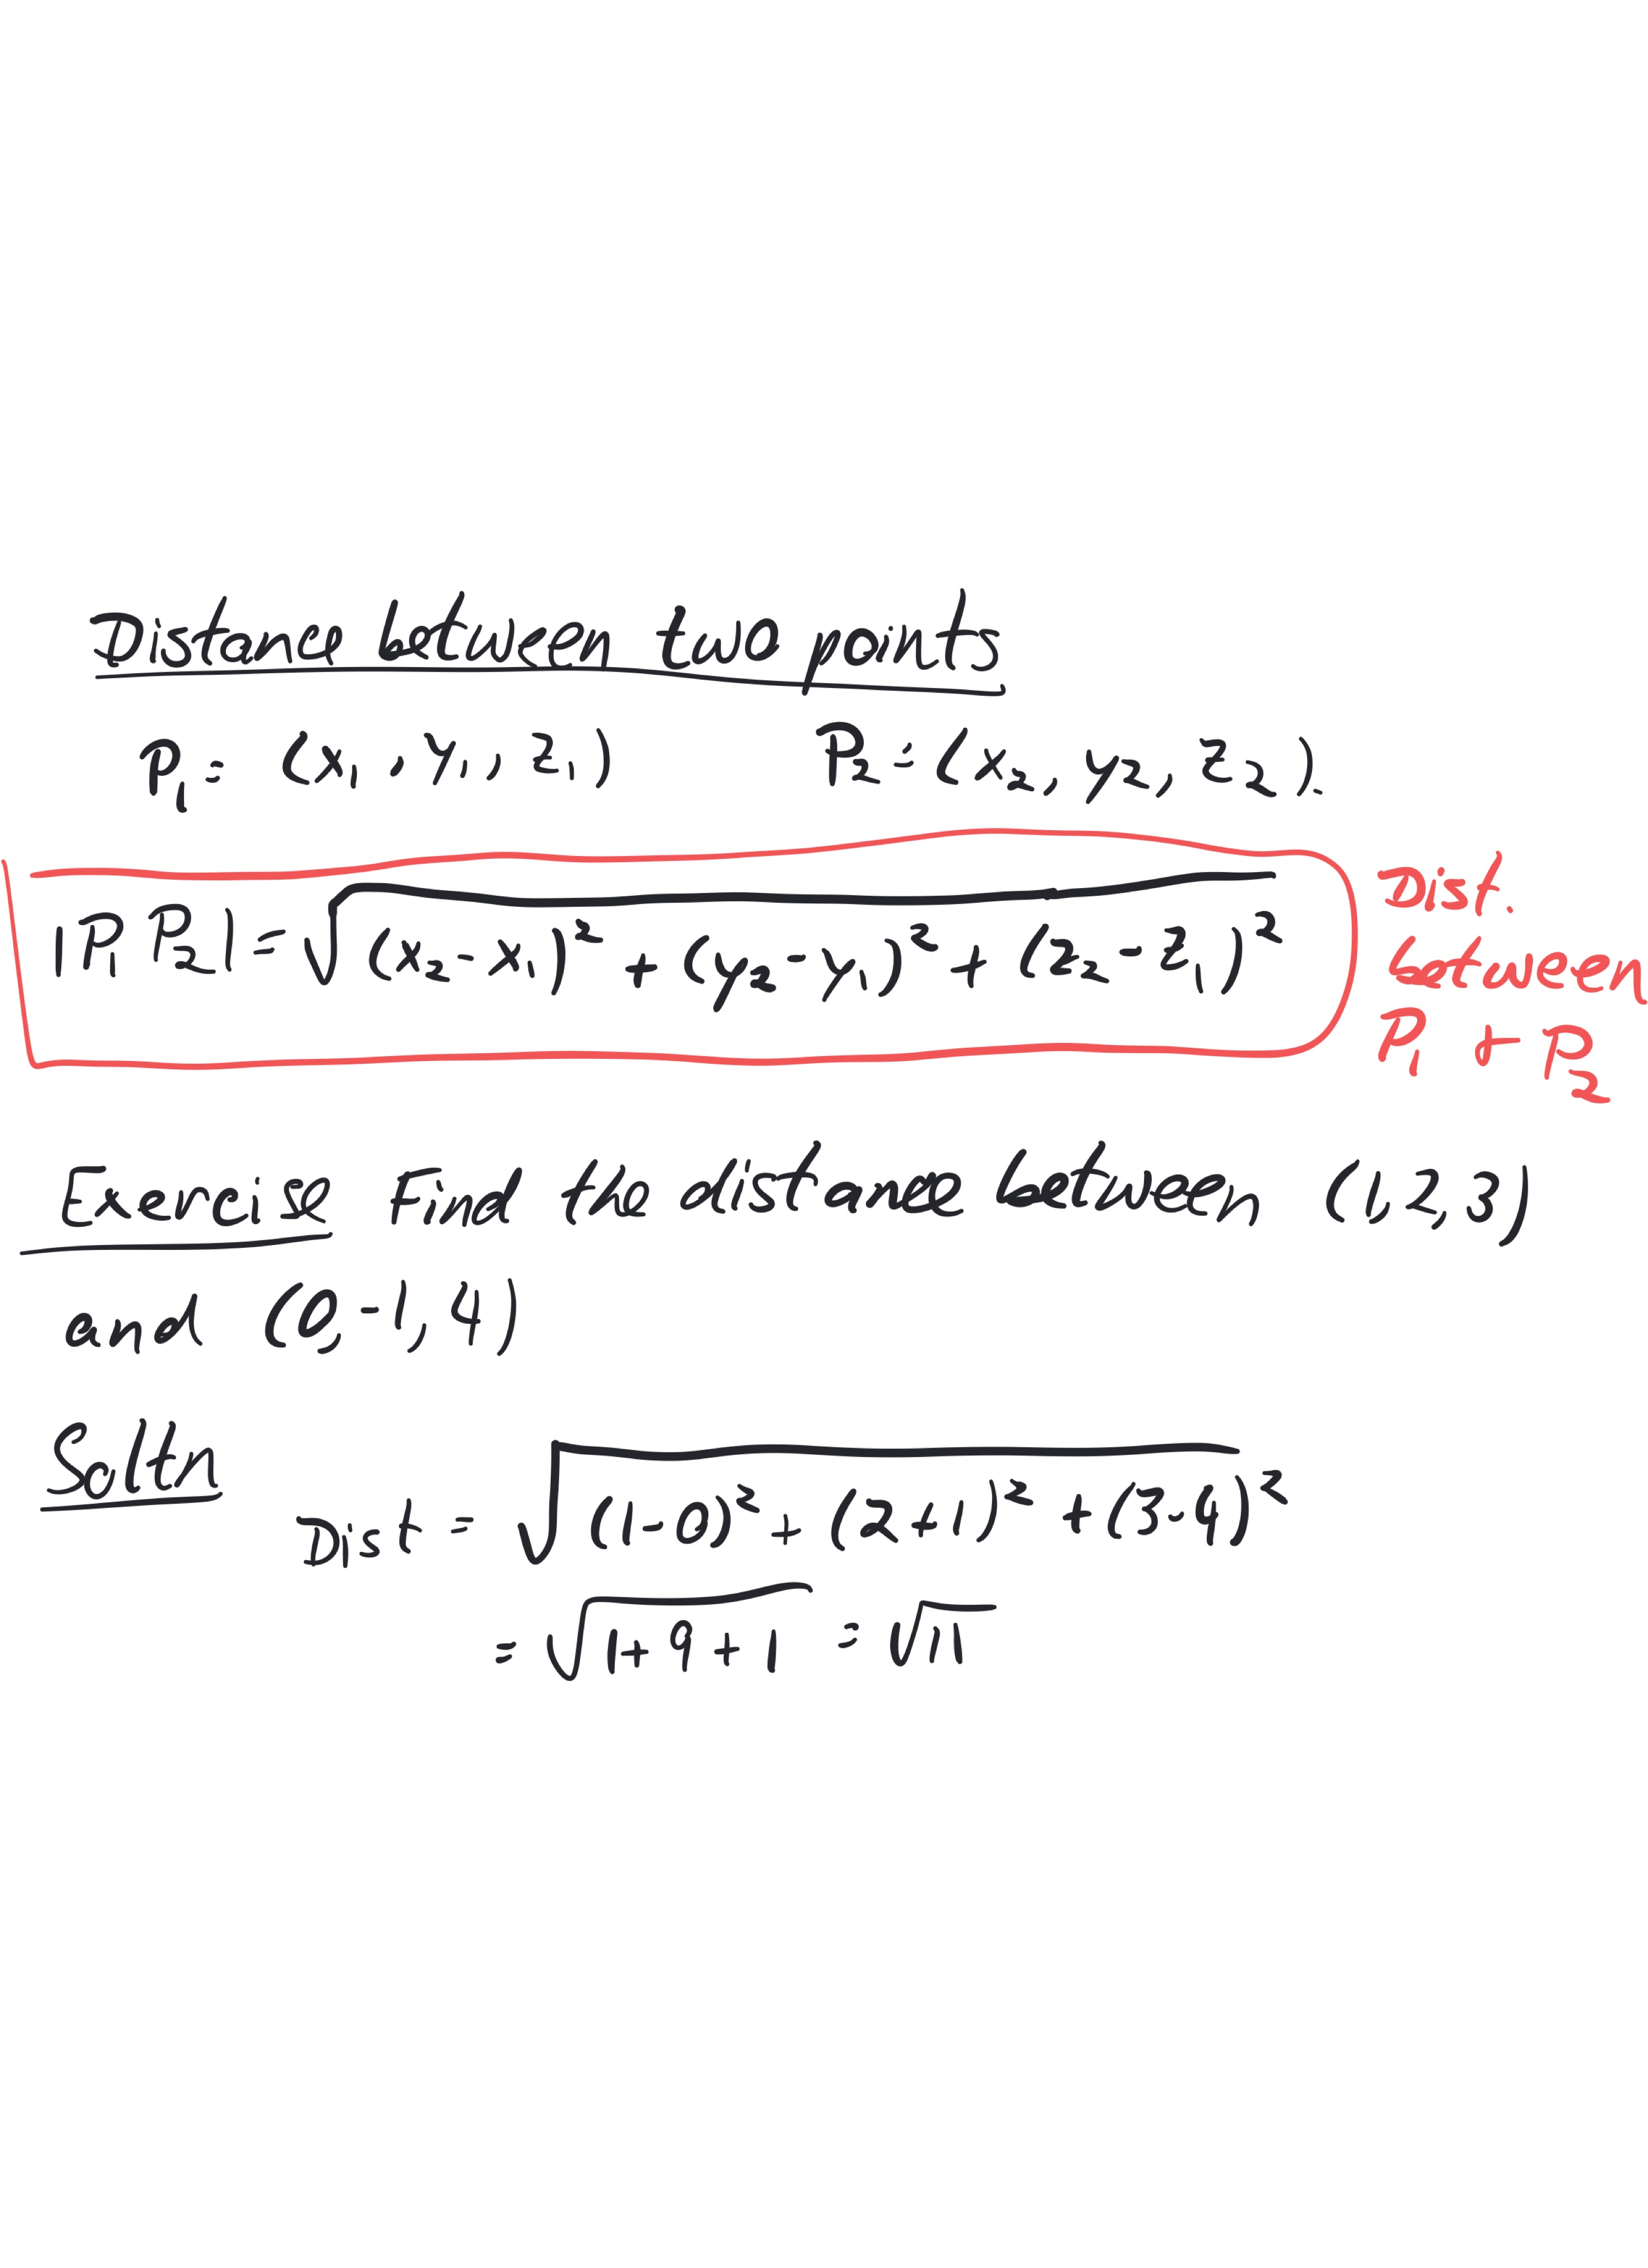 Distance between two points
P₁ = (x₁, y₁, z₁) P₂ = (x₂, y₂, z₂).
|P₁P₂| = √((x₂-x₁)² + (y₂-y₁)² + (z₂-z₁)²)
Dist.
between
P₁ & P₂
Exercise Find the distance between (1,2,3)
and (0,-1,4)
Soltn
Dist = √((1-0)² + (2+1)² + (3-4)²)
= √(1+9+1) = √11